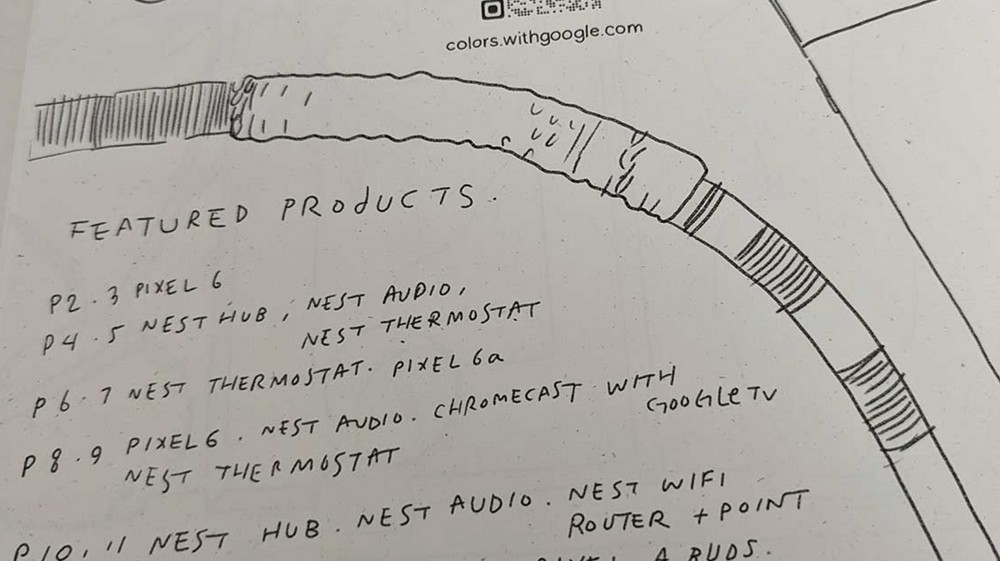 colors.withgoogle.com
FEATURED PRODUCTS.
P2.3 PIXEL 6
P4.5 NEST HUB, NEST AUDIO,
NEST THERMOSTAT
P6.7 NEST THERMOSTAT. PIXEL 6a
P8.9 PIXEL 6. NEST AUDIO. CHROMECAST WITH
GOOGLE TV
NEST THERMOSTAT
P10.11 NEST HUB. NEST AUDIO. NEST WIFI
ROUTER + POINT
A BUDS.